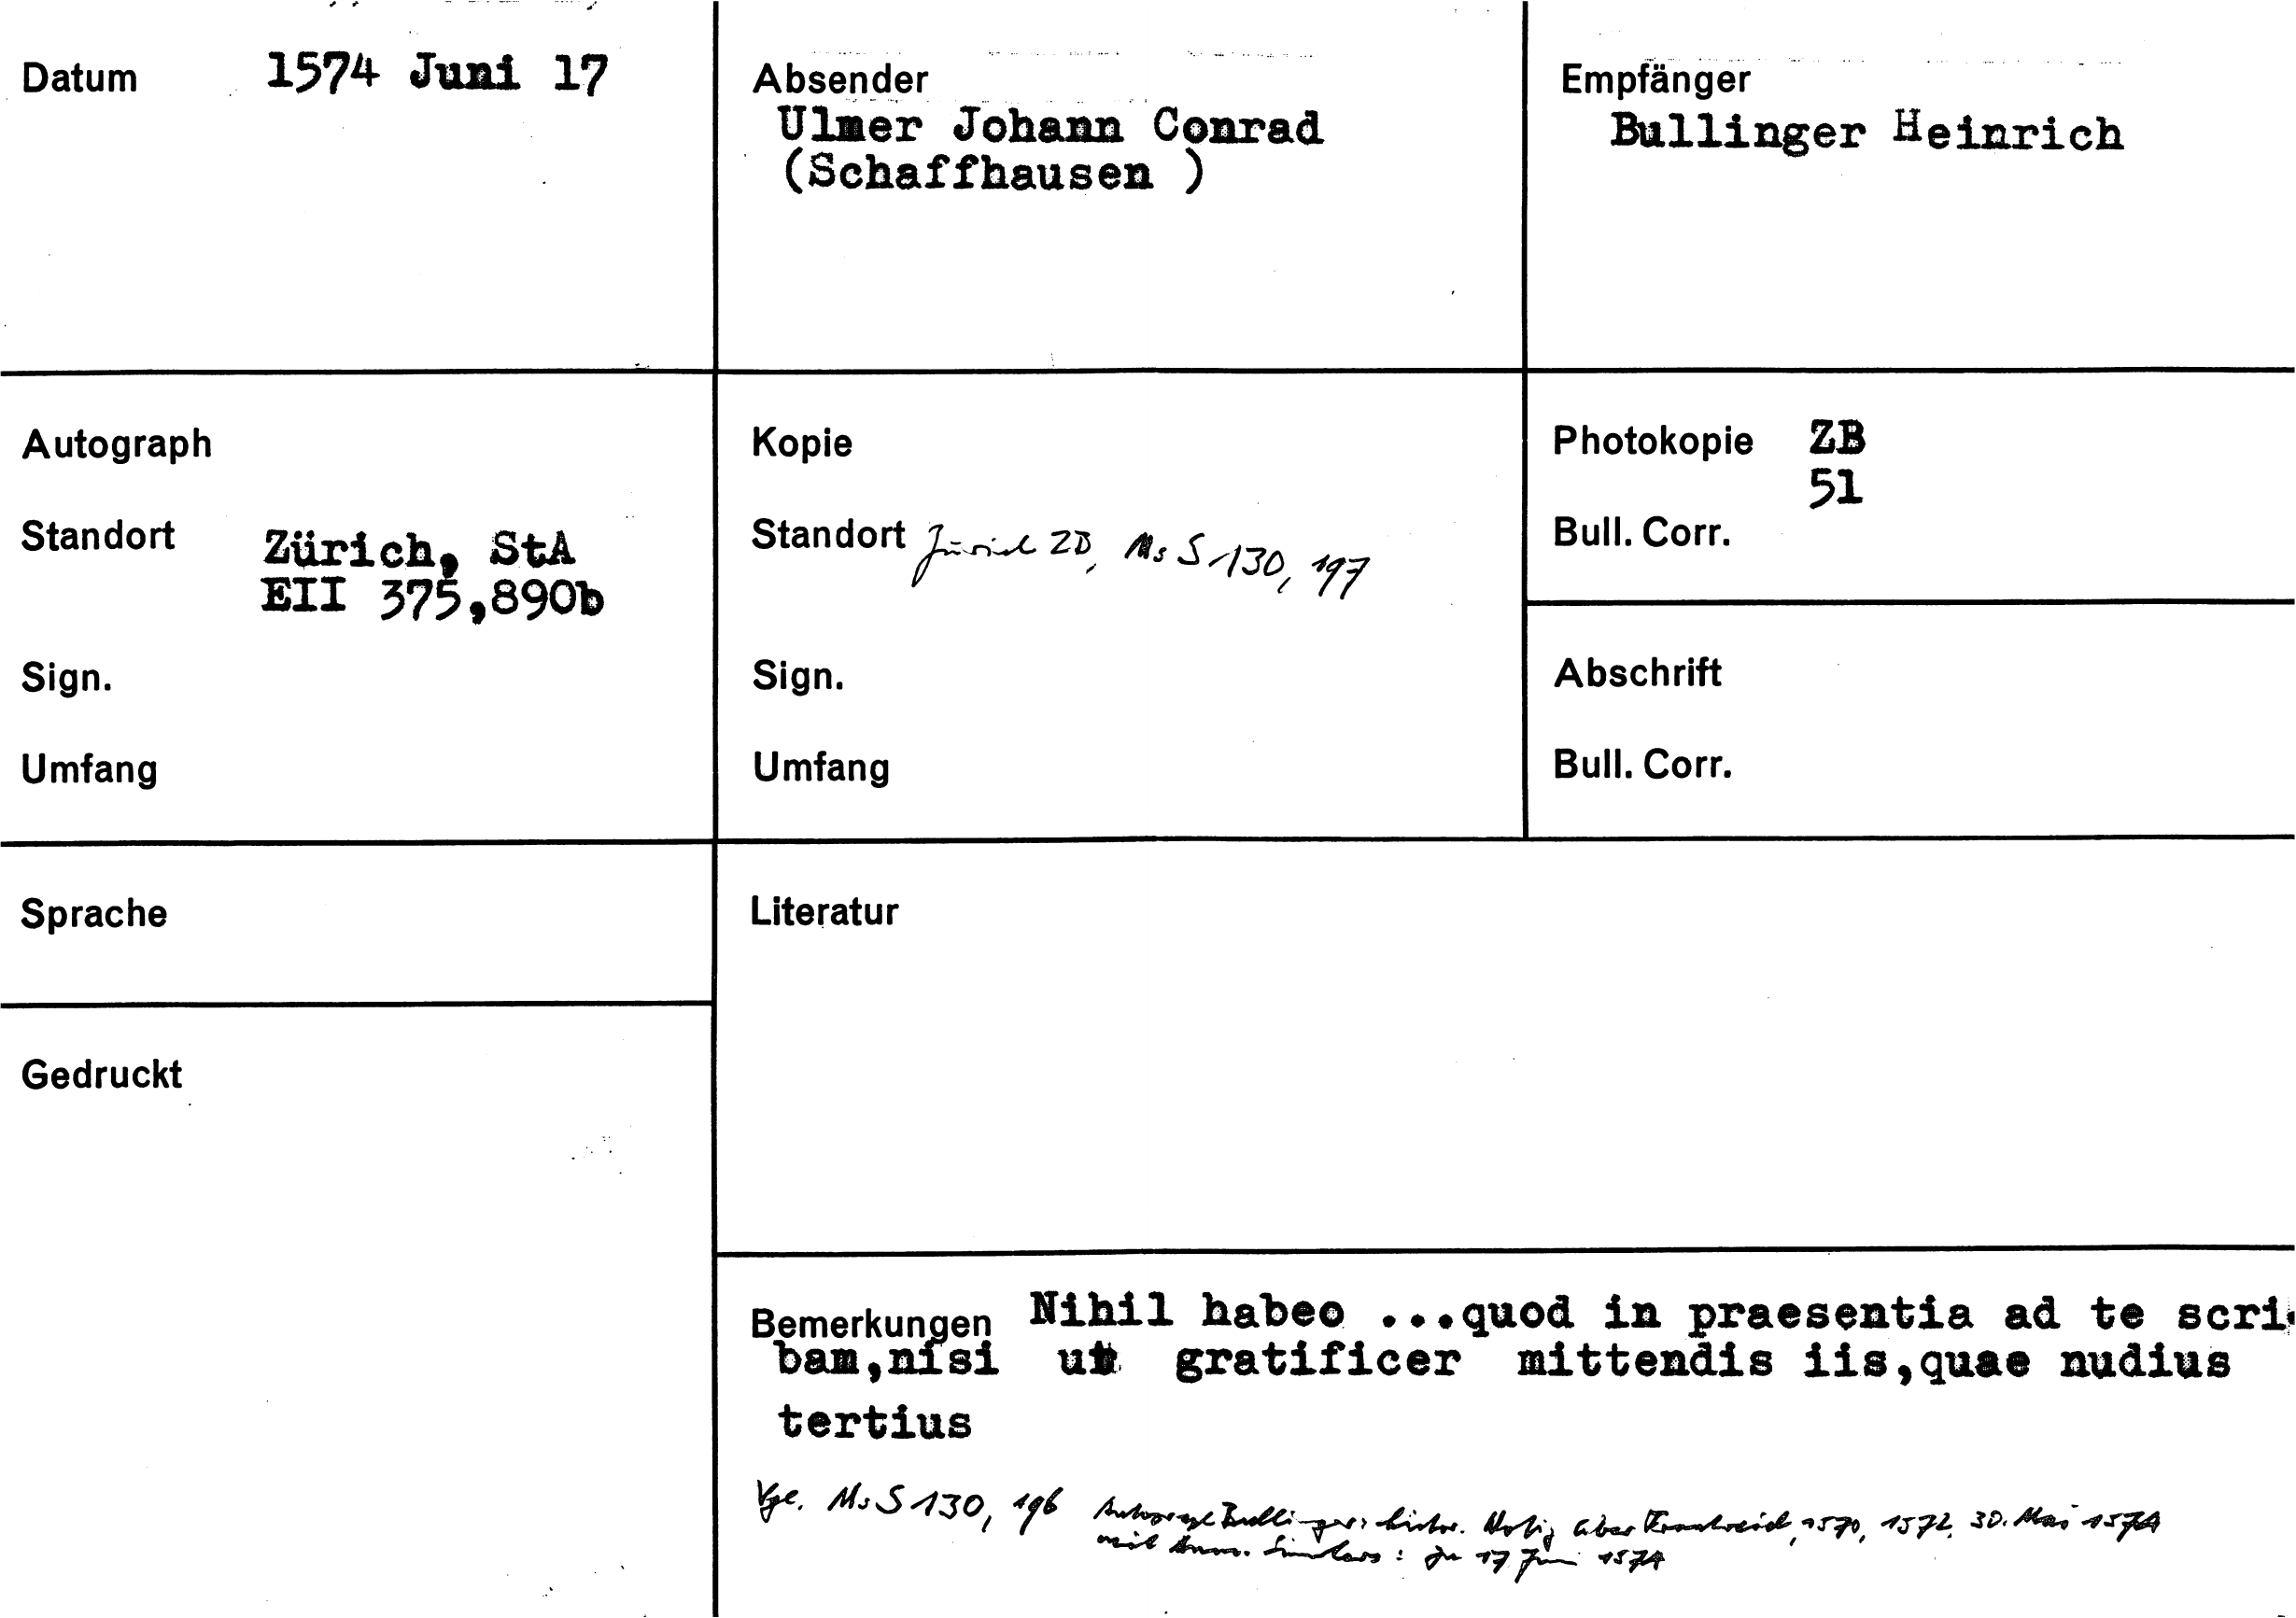 Datum 1574 Juni 17
Absender
Ulmer Johann Conrad
(Schaffhausen )
Empfänger
Bullinger Heinrich
Autograph
Standort Zürich, StA
EII 375,890b
Sign.
Umfang
Kopie
Standort Zürich ZB, Ms S 130, 197
Sign.
Umfang
Photokopie ZB
51
Bull. Corr.
Abschrift
Bull. Corr.
Sprache
Literatur
Gedruckt
Bemerkungen Nihil habeo ...quod in praesentia ad te scri
bam,nisi ut gratificer mittendis iis,quae nudius
tertius
Vgl. Ms S 130, 196 Autograph Bullingers: histor. Notiz über Frankreich, 1570, 1572, 30. Mai 1574
mit Anm. Simlers: zu 17 Juni 1574